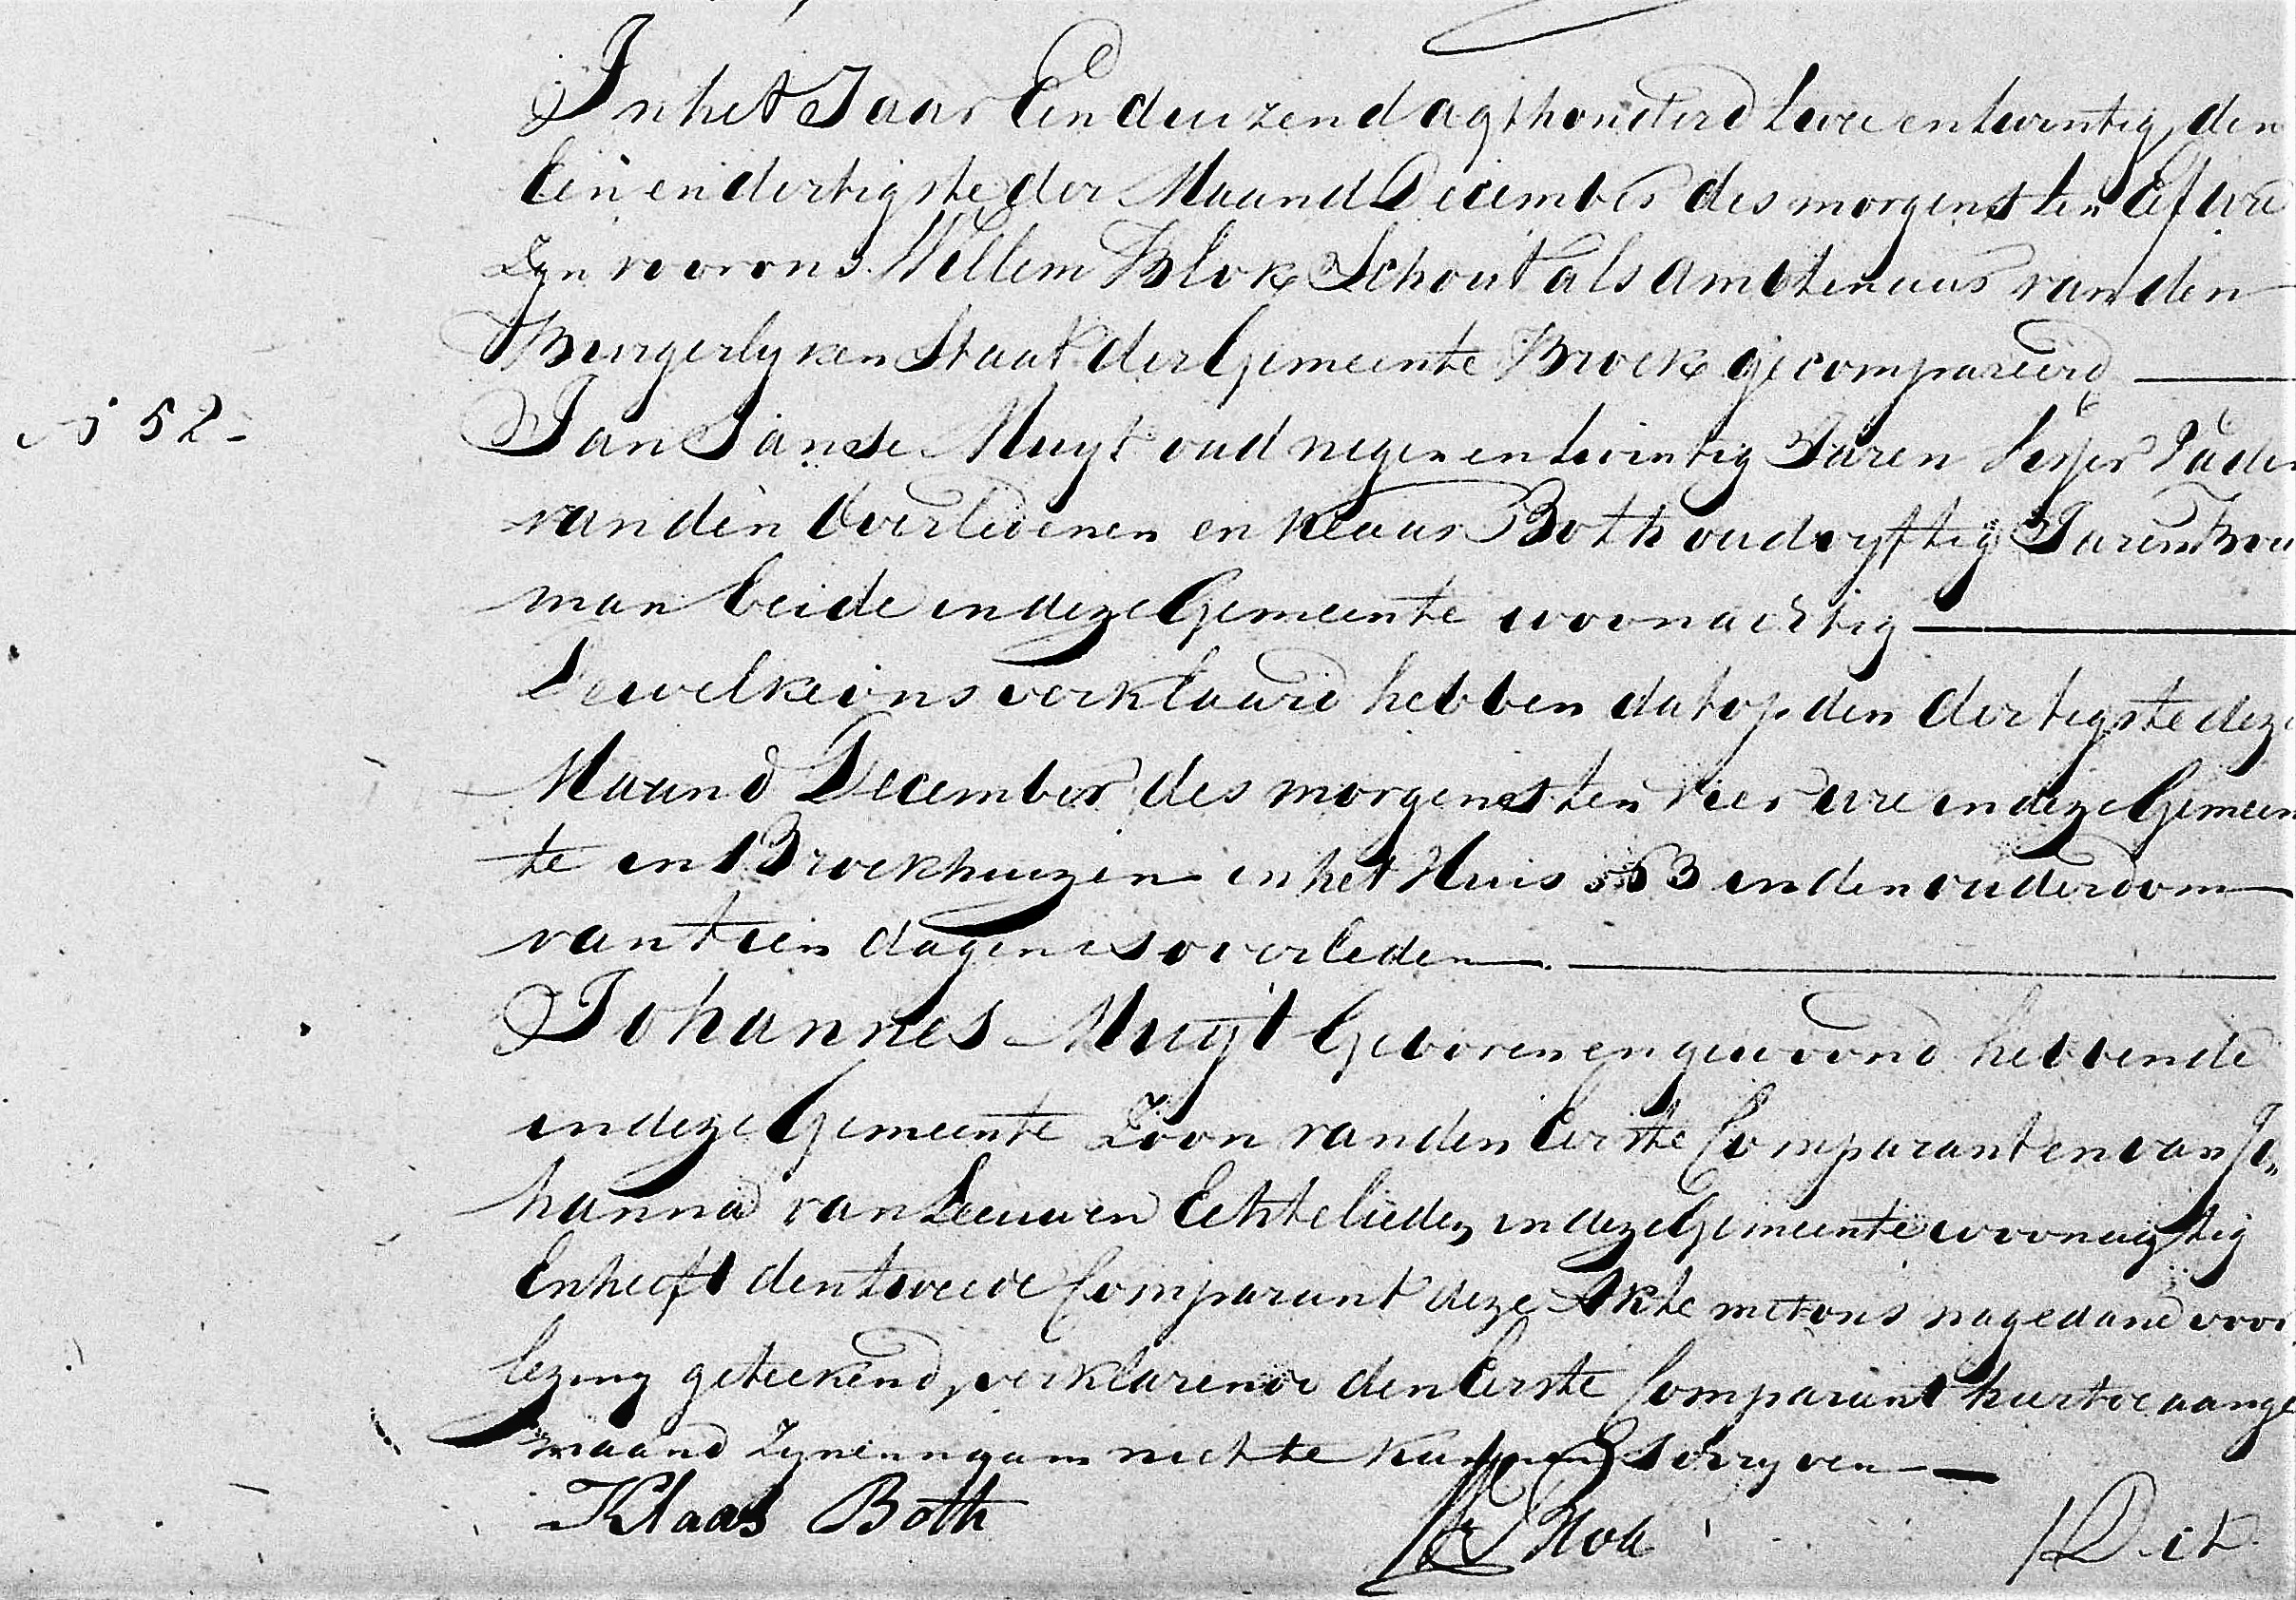 In het Jaar Een duizend agthonderd twee en twintig, den
Een en dertigste der Maand December des morgens ten Elf ure
Zyn voor ons Willem Blok Schout als ambtenaar van den
Burgerlyken Staat der Gemeente Broek gecompareerd
N 52 -
Jan Janse Muyt oud negen en twintig Jaren Vader
van den Overledenen en Klaas Both oud vyftig Jaren Bou
man beide in deze Gemeente woonachtig
Dewelke ons verklaard hebben dat op den dertigste deze
Maand December des morgens ten vier ure in deze Gemeen
te in Broekhuizen in het Huis 53 in den ouderdom
van tien dagen is overleden
Johannes Muyt Geboren en gewoond hebbende
in deze Gemeente Zoon van den Eerste Comparant en van Jo„
hanna van Leeuwen Echtelieden in deze Gemeente woonagtig
En heeft den tweede Comparant deze Akte met ons na gedane voor
lezing geteekend, verklarende den Eerste Comparant hiertoe aange
maand Zynen naam niet te kunnen schryven
Klaas Both W Blok